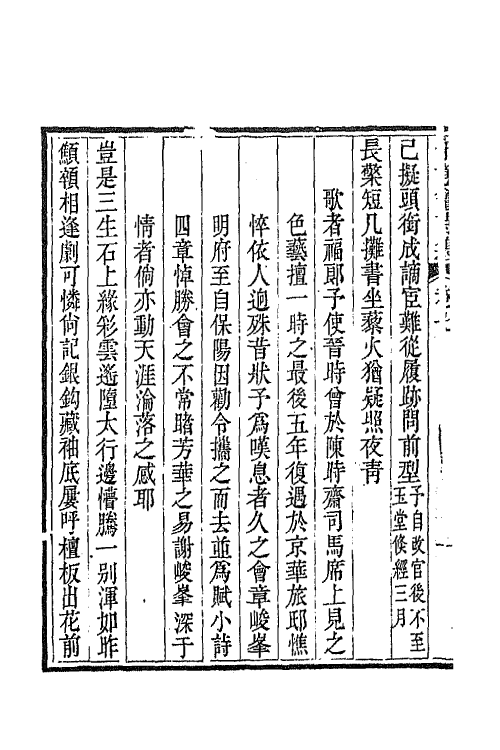 已擬頭銜成謫宦難從履跡問前型予自改官後不至玉堂倏經三月
長檠短几攤書坐藜火猶疑照夜青
歌者福郎予使晉時曾於陳時齋司馬席上見之
色藝擅一時之最後五年復遇於京華旅邸憔
悴依人迥殊昔狀予為嘆息者久之會章峻峯
明府至自保陽因勸令攜之而去並為賦小詩
四章悼勝會之不常喑芳華之易謝峻峯深于
情者倘亦動天涯淪落之感耶
豈是三生石上緣彩雲遙墮太行邊懵騰一別渾如昨
顦顇相逢劇可憐尙記銀鈎藏袖底屢呼檀板出花前